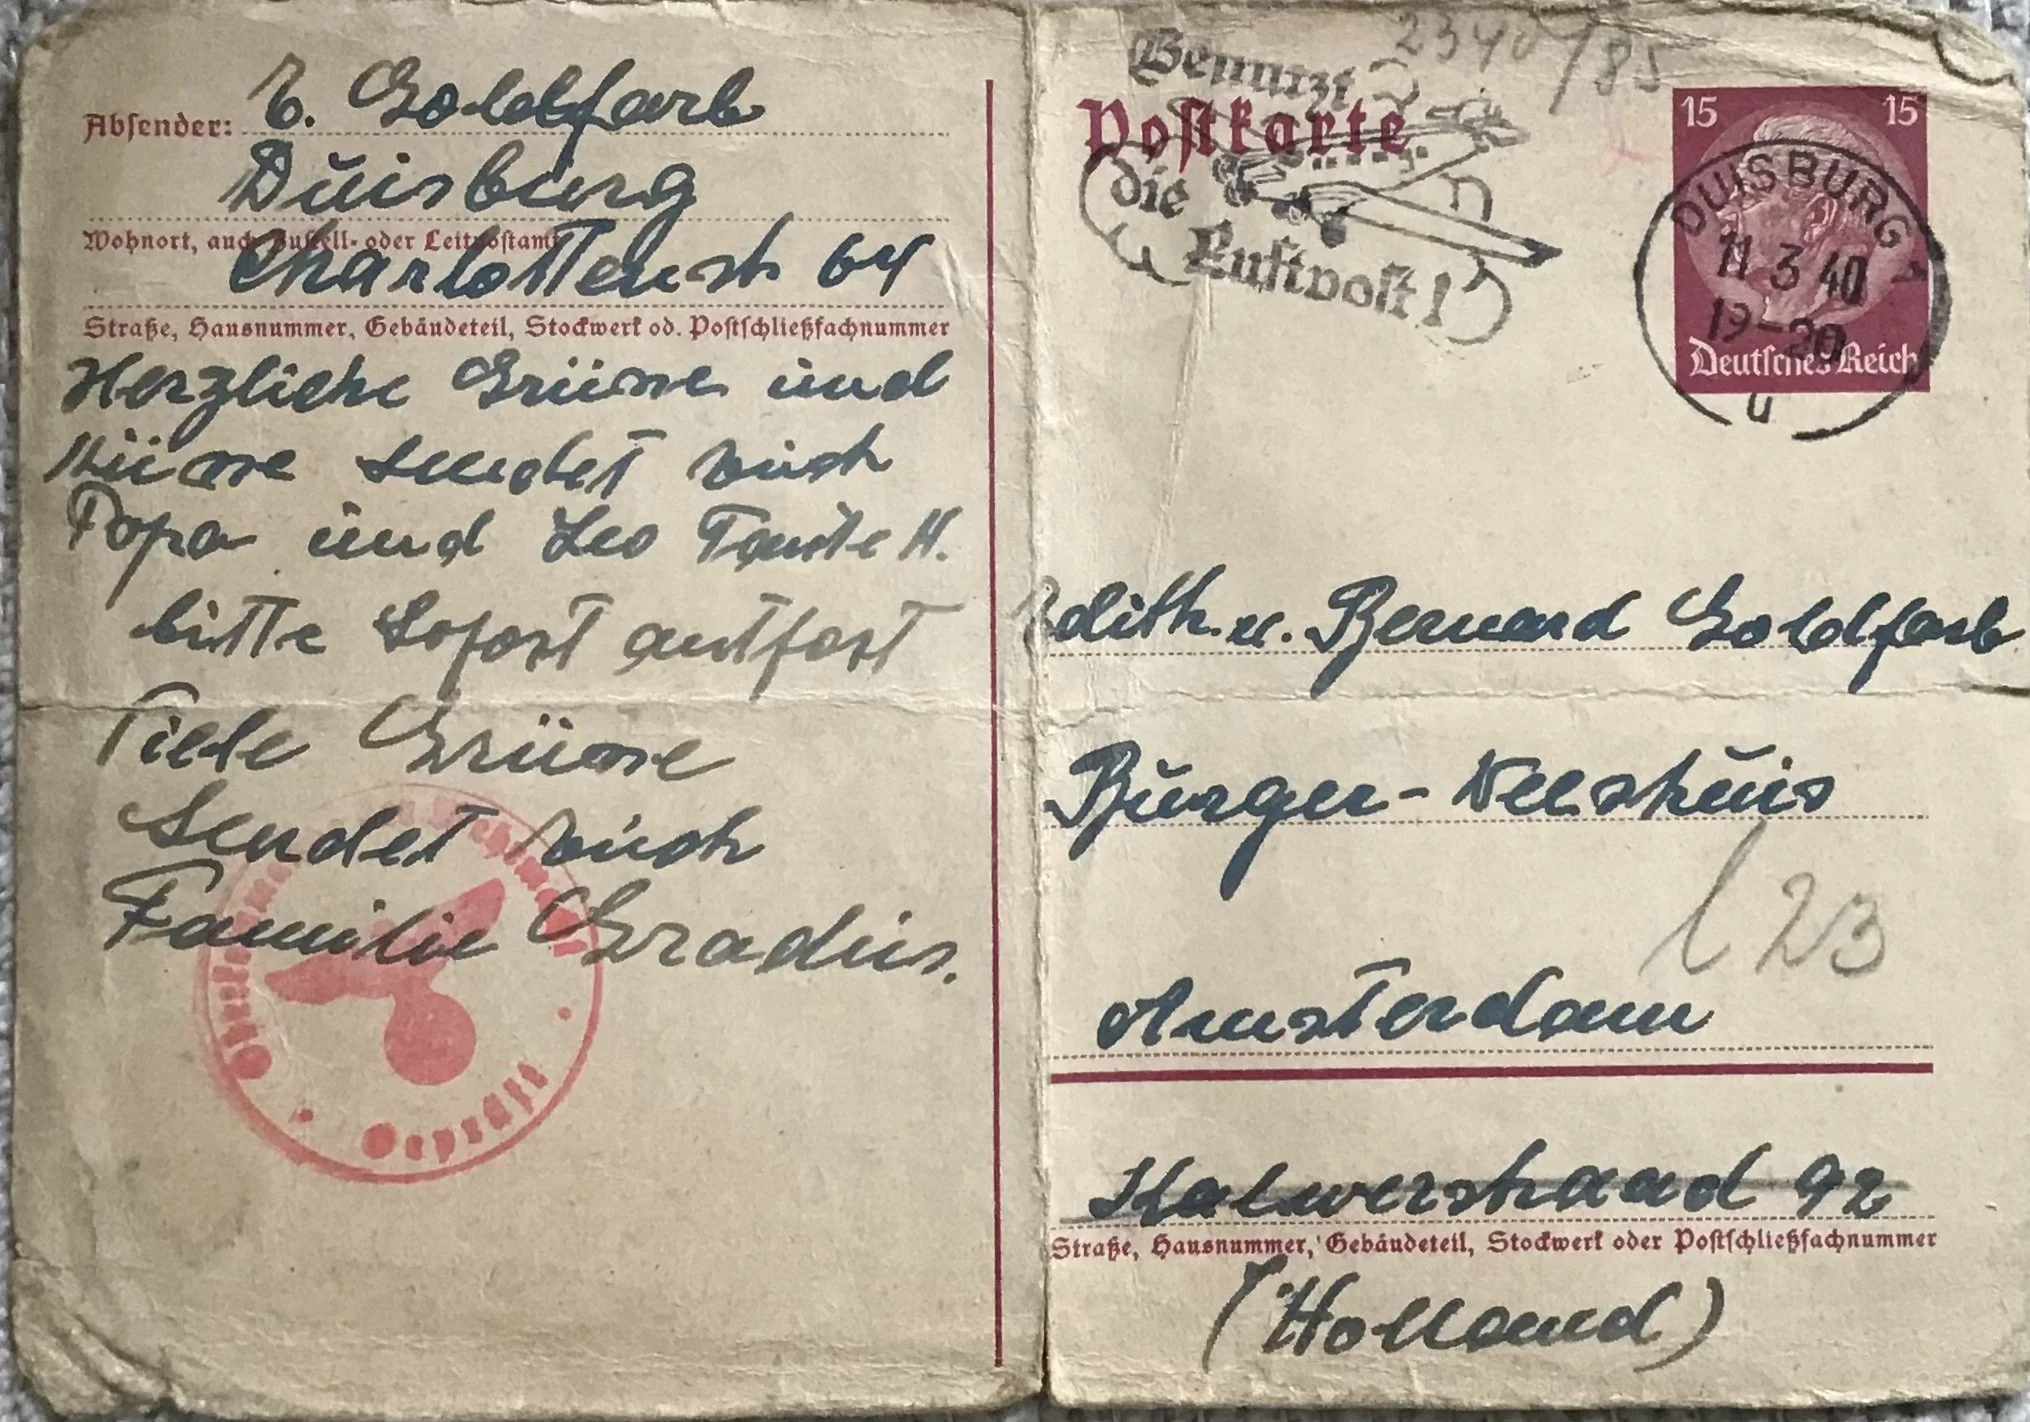 Absender: E. Goldfarb
Duisburg
Wohnort, auch Zustell- oder Leitpostamt
Charlottenstr 64
Straße, Hausnummer, Gebäudeteil, Stockwerk od. Postschließfachnummer
Herzliche Grüsse und
Küsse sendet euch
Papa und Leo Tante H.
bitte Sofort antfort
Fiele Grüsse
Sendet euch
Familie Gradus.
Oberkommando der Wehrmacht
Geprüft
2340/85
Benutzt
Postkarte
die
Luftpost!
15 15
DUISBURG 1
11 3 40
19-20
u
Deutsches Reich
Edith. u. Bernard Goldfarb
Burger-Weeshuis
l 23
Amsterdam
Kalwerstraad 92
Straße, Hausnummer, Gebäudeteil, Stockwerk oder Postschließfachnummer
(Holland)